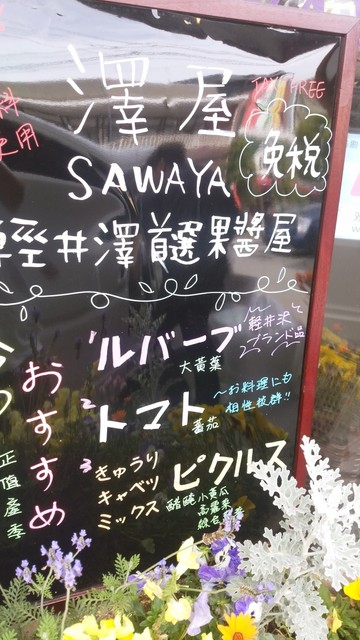 澤屋
TAX FREE
免税
SAWAYA
輕井澤首選果醬屋
おすすめ
1 ルバーブ
大黃葉
軽井沢
ブランド品
2 トマト
蕃茄
〜お料理にも
相性抜群!!
3 きゅうり
キャベツ
ミックス
ピクルス
醋醃小黃瓜
高麗菜
正值產季